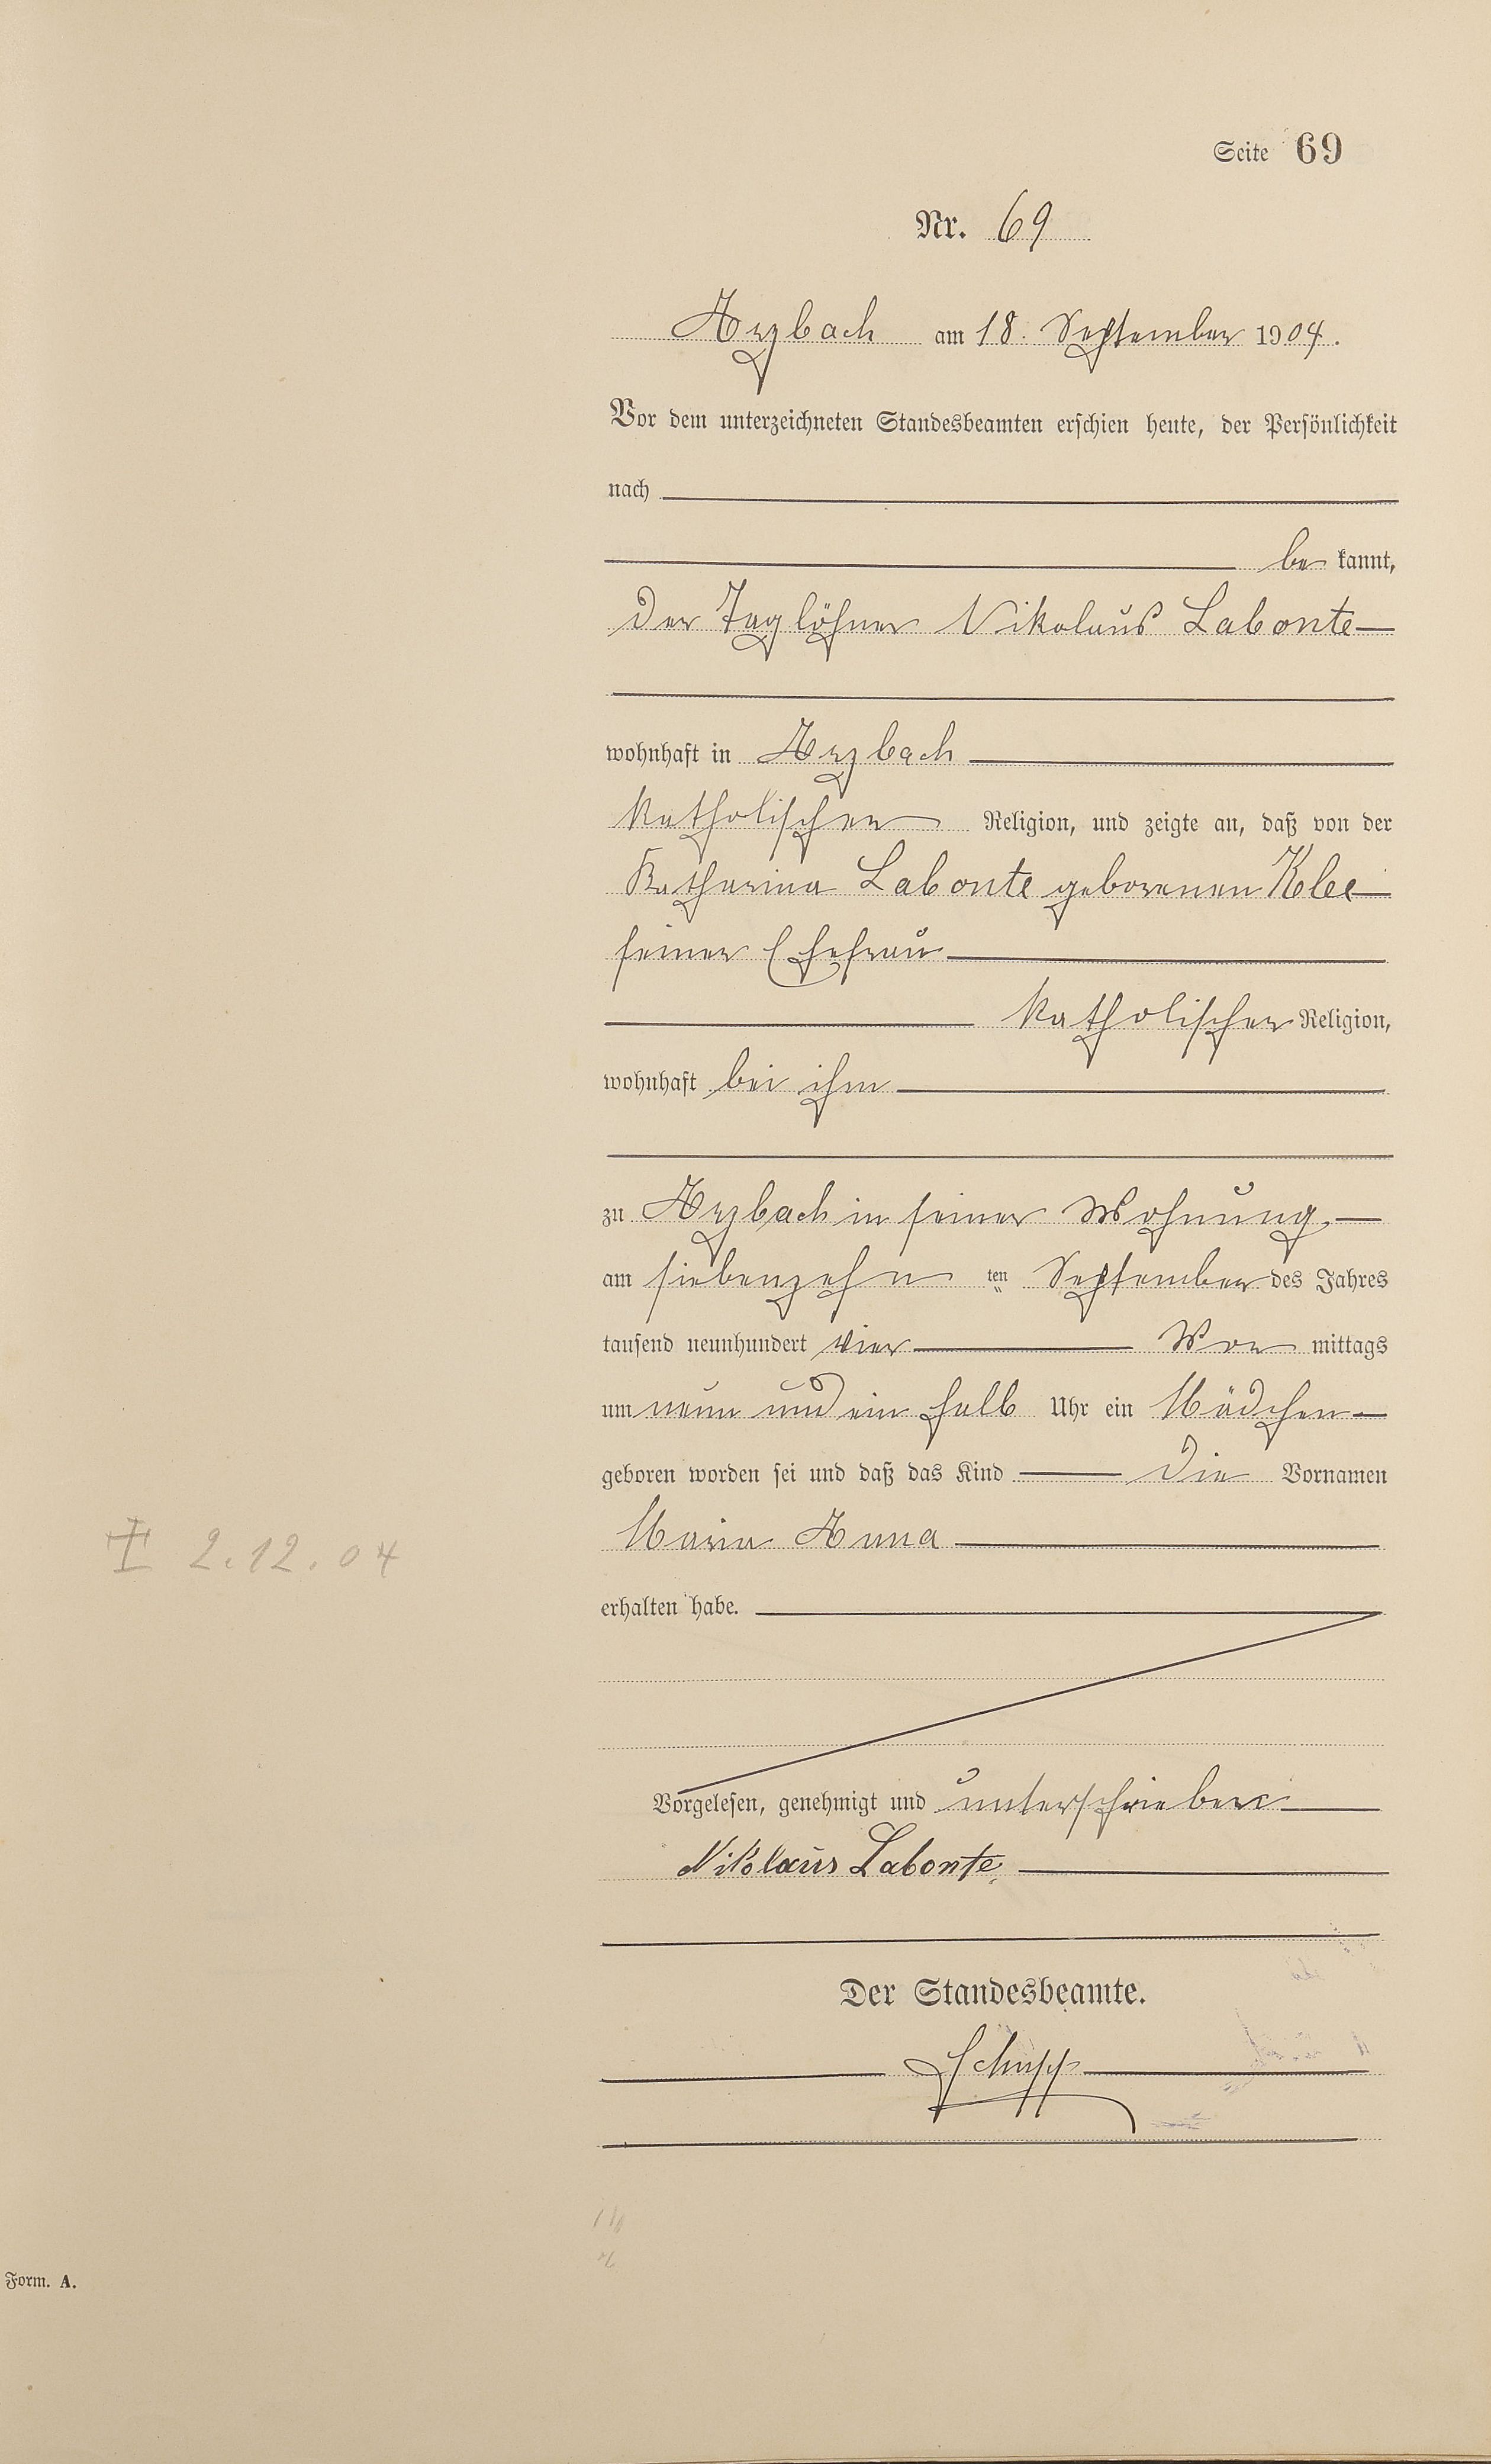 Seite 69
Nr. 69
Arzbach am 18. September 1904.
Vor dem unterzeichneten Standesbeamten erschien heute, der Persönlichkeit
nach
be kannt,
der Taglöhner Nikolaus Labonte
wohnhaft in Arzbach
katholischer Religion, und zeigte an, daß von der
Katharina Labonte geborenen Klee
seiner Ehefrau
katholischer Religion,
wohnhaft bei ihm
zu Arzbach in seiner Wohnung
am siebenzehn ten September des Jahres
tausend neunhundert vier Vor mittags
um neun und ein halb Uhr ein Mädchen
geboren worden sei und daß das Kind die Vornamen
Maria Anna
erhalten habe.
2.12.04
Vorgelesen, genehmigt und unterschrieben
Nikolaus Labonte
Der Standesbeamte.
Schupp
Form. A.